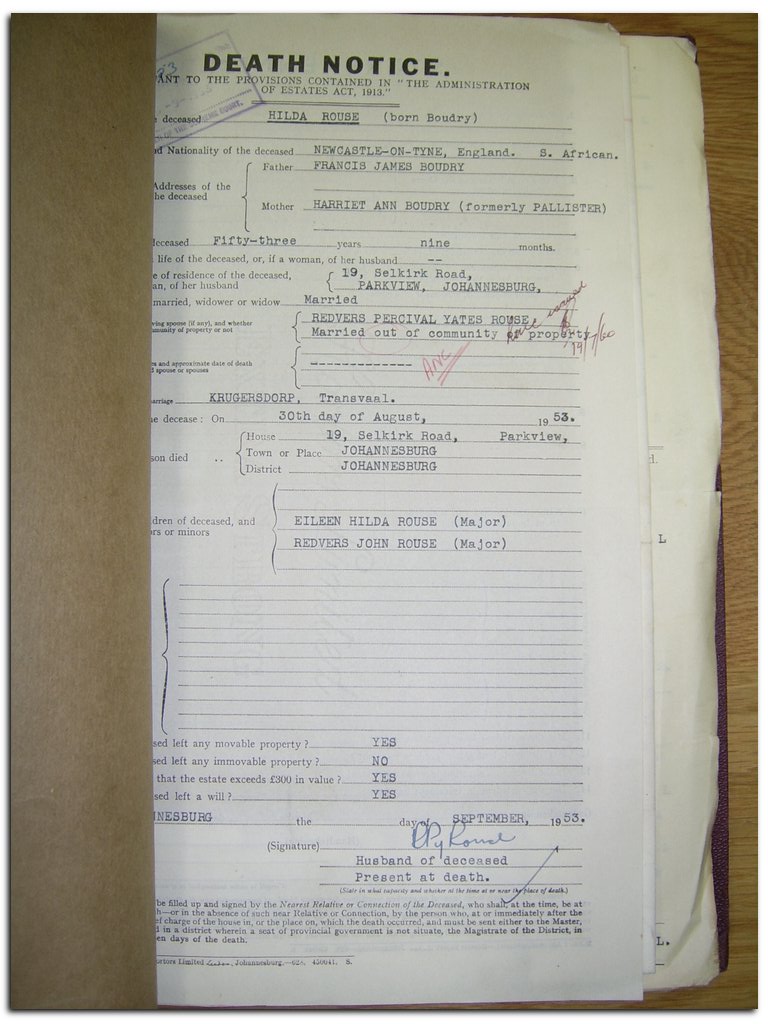 DEATH NOTICE.
ANT TO THE PROVISIONS CONTAINED IN "THE ADMINISTRATION
OF ESTATES ACT, 1913."
deceased HILDA ROUSE (born Boudry)
d Nationality of the deceased NEWCASTLE-ON-TYNE, England. S. African.
Father FRANCIS JAMES BOUDRY
Addresses of the
he deceased
Mother HARRIET ANN BOUDRY (formerly PALLISTER)
deceased Fifty-three years nine months.
life of the deceased, or, if a woman, of her husband --
e of residence of the deceased, 19, Selkirk Road,
an, of her husband PARKVIEW, JOHANNESBURG,
married, widower or widow Married
ving spouse (if any), and whether REDVERS PERCIVAL YATES ROUSE
munity of property or not Married out of community of property
19/7/60
ANC
rs and approximate date of death -------------
d spouse or spouses
arriage KRUGERSDORP, Transvaal.
he decease: On 30th day of August, 1953.
House 19, Selkirk Road, Parkview,
son died .. Town or Place JOHANNESBURG
District JOHANNESBURG
ildren of deceased, and EILEEN HILDA ROUSE (Major)
ors or minors
REDVERS JOHN ROUSE (Major)
sed left any movable property? YES
sed left any immovable property? NO
that the estate exceeds £300 in value? YES
sed left a will? YES
NNESBURG the day of SEPTEMBER, 1953.
(Signature) RPY Rouse
Husband of deceased
Present at death.
(State in what capacity and whether at the time at or near the place of death.)
be filled up and signed by the Nearest Relative or Connection of the Deceased, who shall, at the time, be at
h—or in the absence of such near Relative or Connection, by the person who, at or immediately after the
ef charge of the house in, or the place on, which the death occurred, and must be sent either to the Master,
d in a district wherein a seat of provincial government is not situate, the Magistrate of the District, in
en days of the death.
Limited Johannesburg.—628. 450041. S.
d.
L
L.